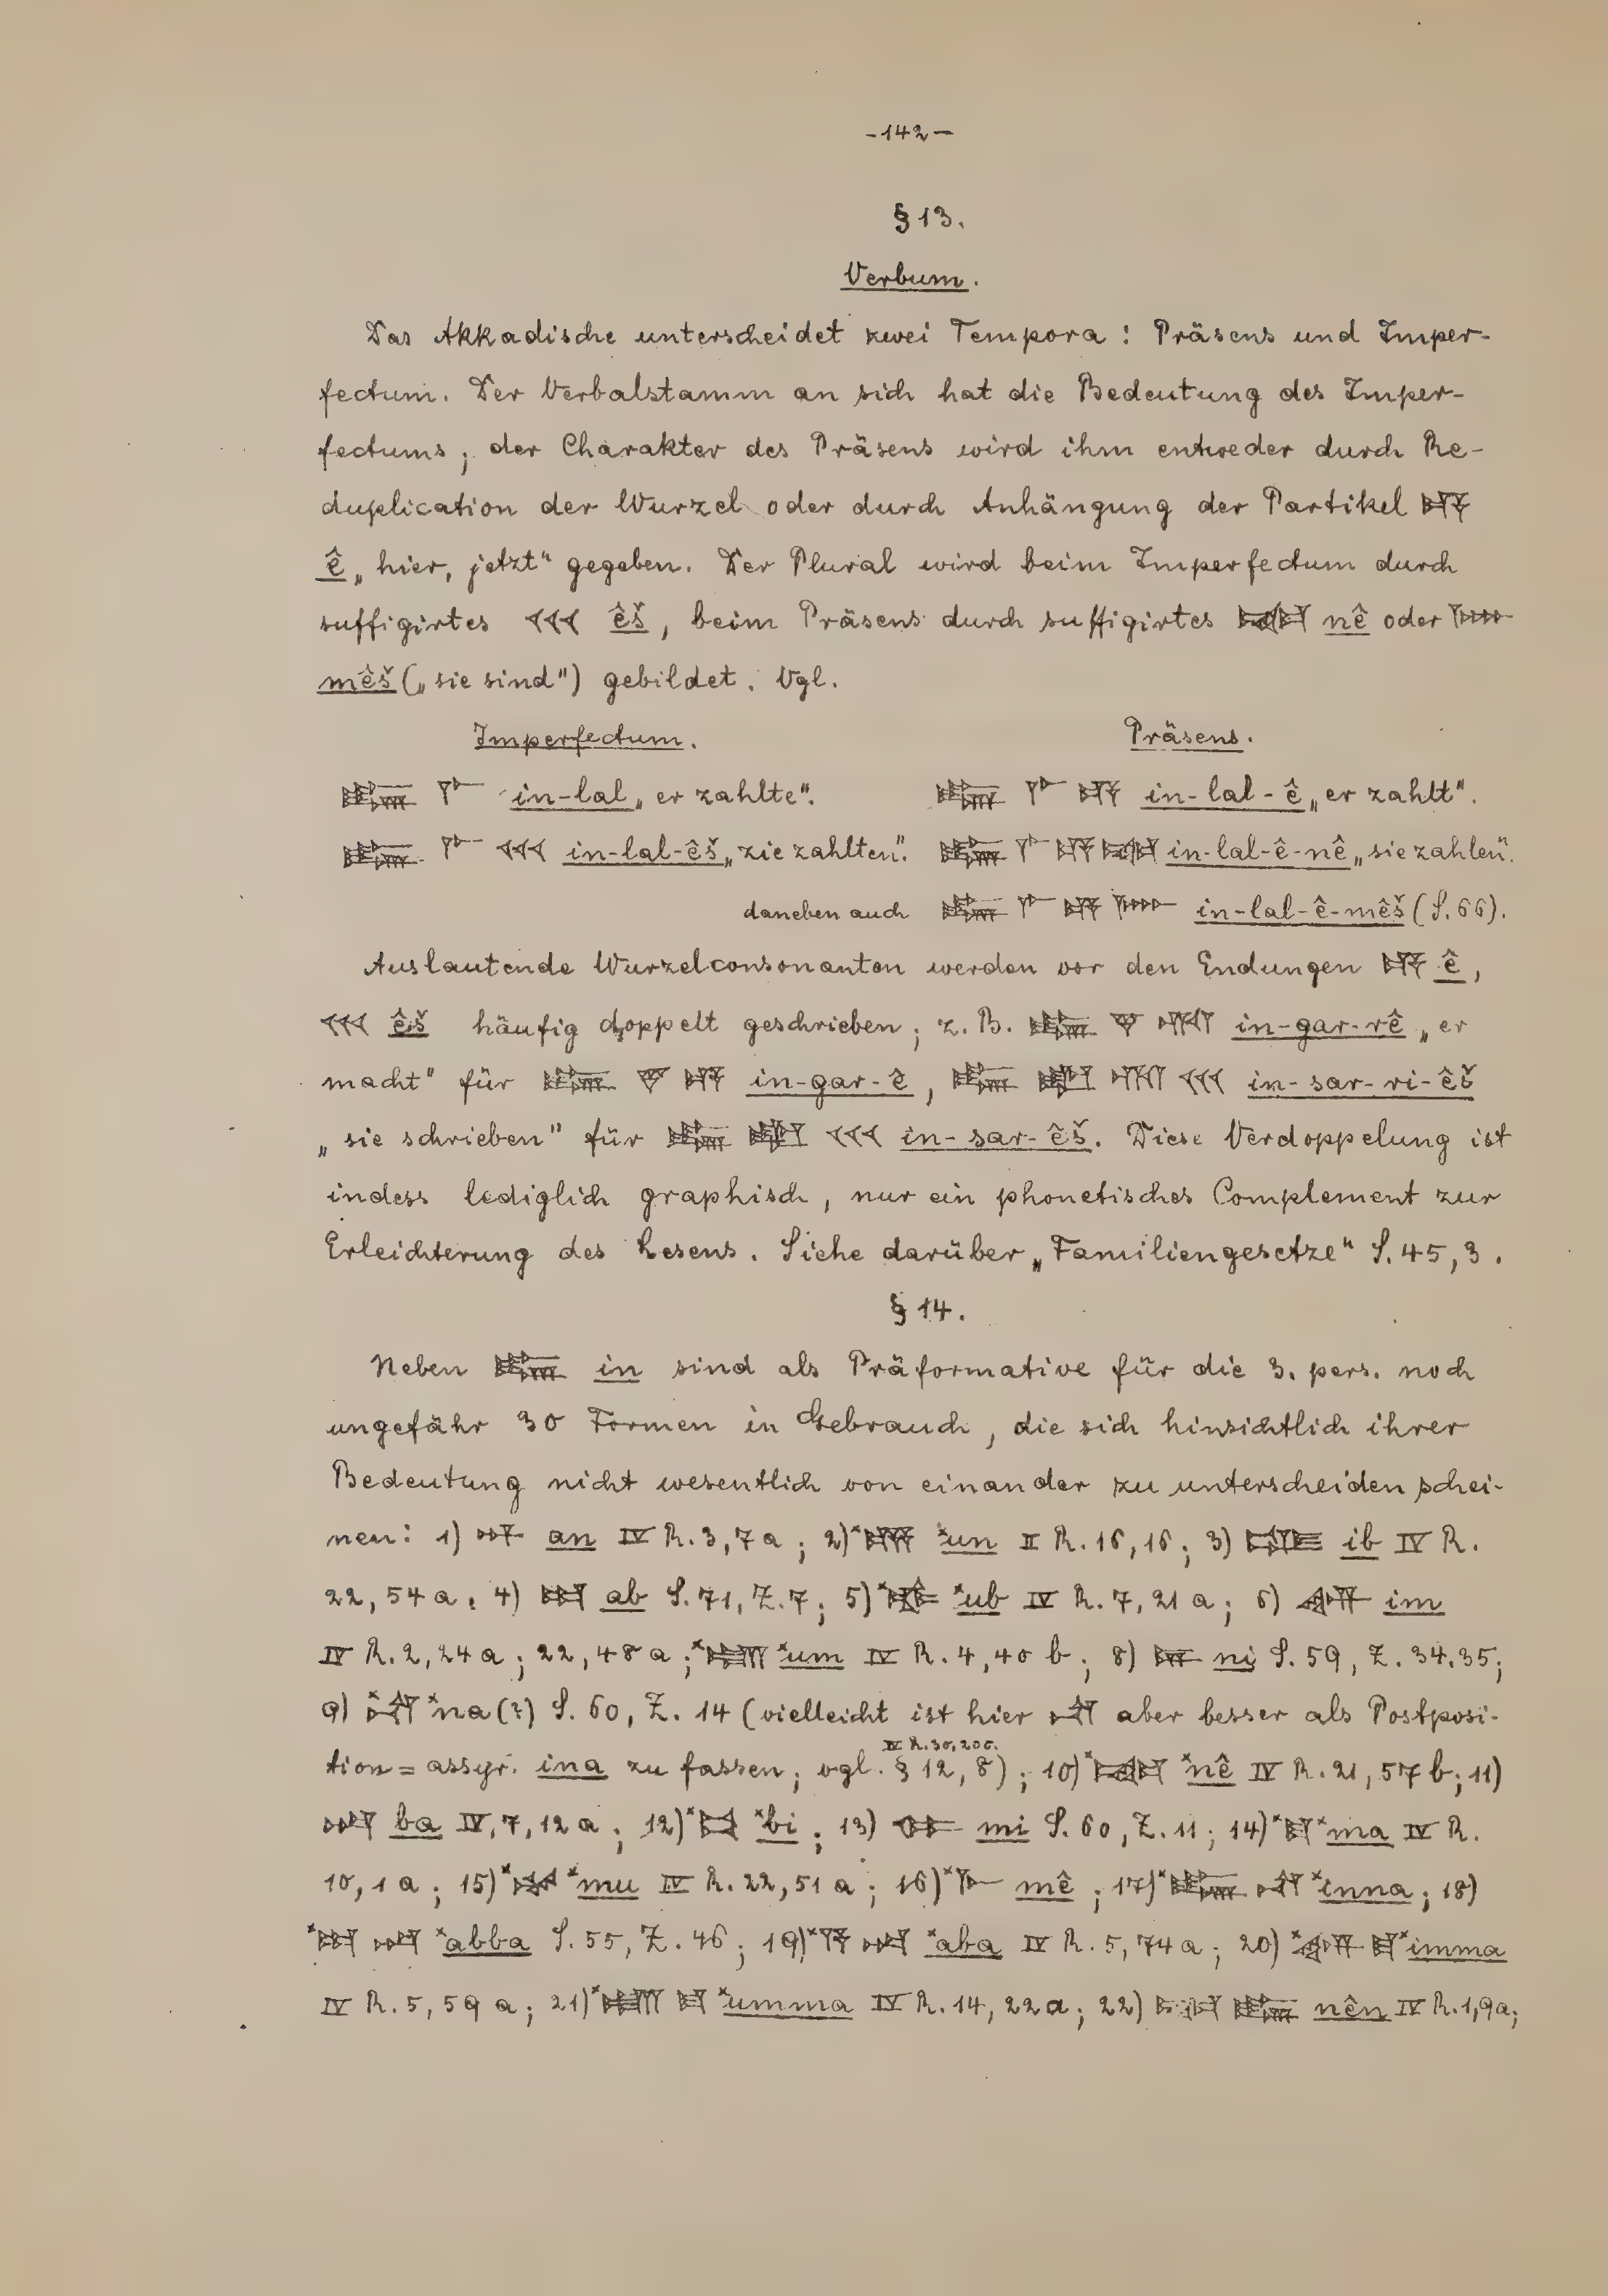 -142-
§ 13.
Verbum.
Das Akkadische unterscheidet zwei Tempora: Präsens und Imper-
fectum. Der Verbalstamm an sich hat die Bedeutung des Imper-
fectums; der Charakter des Präsens wird ihm entweder durch Re-
duplication der Wurzel oder durch Anhängung der Partikel 𒂊
ê „hier, jetzt" gegeben. Der Plural wird beim Imperfectum durch
suffigirtes 𒌍 êš, beim Präsens durch suffigirtes 𒉈 nê oder 𒈨𒌍
mêš („sie sind") gebildet. Vgl.
Imperfectum. Präsens.
𒅔 𒇲 in-lal „er zahlte". 𒅔 𒇲 𒂊 in-lal-ê „er zahlt".
𒅔 𒇲 𒌍 in-lal-êš „zie zahlten". 𒅔 𒇲 𒂊 𒉈 in-lal-ê-nê „sie zahlen".
daneben auch 𒅔 𒇲 𒂊 𒈨𒌍 in-lal-ê-mêš (S. 66).
Auslautende Wurzelconsonanten werden vor den Endungen 𒂊 ê,
𒌍 êš häufig doppelt geschrieben; z. B. 𒅔 𒃻 𒊑 in-gar-rê „er
macht" für 𒅔 𒃻 𒂊 in-gar-ê, 𒅔 𒊬 𒊑 𒌍 in-sar-ri-êš
„sie schrieben" für 𒅔 𒊬 𒌍 in-sar-êš. Diese Verdoppelung ist
indess lediglich graphisch, nur ein phonetisches Complement zur
Erleichterung des Lesens. Siehe darüber „Familiengesetze" S. 45, 3.
§ 14.
Neben 𒅔 in sind als Präformative für die 3. pers. noch
ungefähr 30 Formen in Gebrauch, die sich hinsichtlich ihrer
Bedeutung nicht wesentlich von einander zu unterscheiden schei-
nen: 1) 𒀭 an IV R. 3, 7 a; 2) *𒌦 *un II R. 16, 16; 3) 𒅁 ib IV R.
22, 54 a; 4) 𒀊 ab S. 71, Z. 7; 5) *𒌒 *ub IV R. 7, 21 a; 6) 𒅎 im
IV R. 2, 24 a; 22, 48 a; *𒌝 *um IV R. 4, 40 b; 8) 𒉌 ni S. 59, Z. 34.35;
9) *𒈾 *na (?) S. 60, Z. 14 (vielleicht ist hier 𒈾 aber besser als Postposi-
IV R. 30, 20 c.
tion = assyr. ina zu fassen; vgl. § 12, 8); 10) *𒉈 *nê IV R. 21, 57 b; 11)
𒁀 ba IV, 7, 12 a; 12) *𒁉 *bi; 13) 𒈪 mi S. 60, Z. 11; 14) *𒈠 *ma IV R.
10, 1 a; 15) *𒈬 *mu IV R. 22, 51 a; 16) *𒈨 mê; 17) *𒅔 𒈾 *inna; 18)
*𒀊 𒁀 *abba S. 55, Z. 46; 19) *𒀀 𒁀 *aba IV R. 5, 74 a; 20) *𒅎 𒈠 *imma
IV R. 5, 59 a; 21) *𒌝 𒈠 *umma IV R. 14, 22 a; 22) 𒉈 𒅔 nên IV R. 1, 9a;